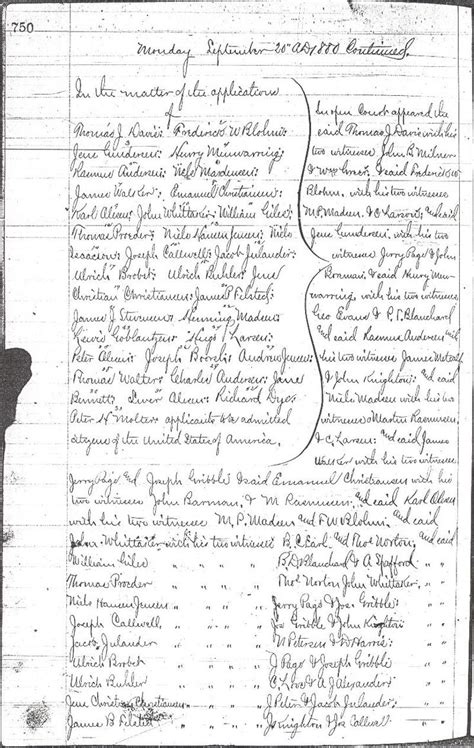 750
Monday September 20th AD 1880 Continued.
In the matter of the application
of
Thomas J. Davis; Frederick W Blohm;
Jens Gundersen; Henry Munwarring;
Rasmus Andersen; Niels Madsen;
James Walker; Emanuel Christiansen;
Karl Olsen; John Whittaker; William Giles;
Thomas Procter; Niels Hansen Jensen; Niels
Isaacson; Joseph Callwell; Jacob Julander;
Ulrich Brobst; Ulrich Buhler; Jens
Christian Christiansen; James P. Felsted;
James J. Stevensen; Henning Madsen;
Lewis; Larsen;
Peter Olsen; Joseph; Andrew Jensen;
Thomas Walters; Charles Andersen; Jane
Bennett; Iver Olsen; Richard Dye;
Peter H Molter; applicants to be admitted
citizens of the United States of America.
In open Court appeared the
said Thomas J Davis with his
two witnesses John B. Milner
& Wm; & said Frederick W
Blohm, with his two witnesses
M. P. Madsen, & C Larsen; and said
Jens Gundersen, with his two
witnesses Jerry Page & John
Borman; & said Henry Mun-
warring, with his two witnesses
Geo Evans & R. D. Blanchard
and said Rasmus Andersen with
his two witnesses James Metcalf
& John Knighton; and said
Niels Madsen with his two
witnesses Martin Rasmussen
& C. Larsen; and said James
Walker with his two witnesses
Jerry Page and Joseph Gribble; & said Emanuel Christiansen with his
two witnesses John Barman, & M Rasmussen; and said Karl Olsen
with his two witnesses M. P. Madsen and F W Blohm; and said
John Whittaker with his two witnesses B. C. Earl, and Thos Norton; and said
William Giles " " " " B. D. Blanchard & A Stafford " "
Thomas Procter " " " " Thos Norton John Whittaker, " "
Niels Hansen Jensen " " " " Jerry Page & Jos Gribble " "
Joseph Callwell " " " " Jos Gribble & John Knighton " "
Jacob Julander " " " " M Petersen & D Harris " "
Ulrich Brobst " " " " J Page & Joseph Gribble " "
Ulrich Buhler " " " " C. Love & A J Alexander " "
Jens Christian Christiansen " " " J Peter & Jacob Julander " "
James B Felsted " " " J Knighton & Jos Callwell " "